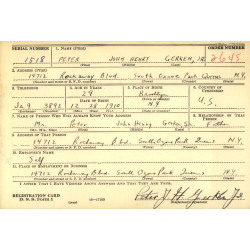 SERIAL NUMBER 1. NAME (Print) ORDER NUMBER
1818 PETER JOHN HENRY GERKEN, JR. 2648
2. ADDRESS (Print)
14712 Rockaway Blvd. South Ozone Park Queens N.Y.
3. TELEPHONE 4. AGE IN YEARS 5. PLACE OF BIRTH 6. COUNTRY OF CITIZENSHIP
24 Brooklyn
Ja 9 3892 28 1916 N.Y. U.S.
7. NAME OF PERSON WHO WILL ALWAYS KNOW YOUR ADDRESS 8. RELATIONSHIP OF THAT PERSON
Mr. Peter John Henry Gerken Sr. Father
9. ADDRESS OF THAT PERSON
14712 Rockaway Blvd South Ozone Park Queens N.Y.
10. EMPLOYER'S NAME
Self
11. PLACE OF EMPLOYMENT OR BUSINESS
14712 Rockaway Blvd South Ozone Park Queens N.Y.
I AFFIRM THAT I HAVE VERIFIED ABOVE ANSWERS AND THAT THEY ARE TRUE.
REGISTRATION CARD
D. S. S. FORM 1
Peter J H Gerken Jr.